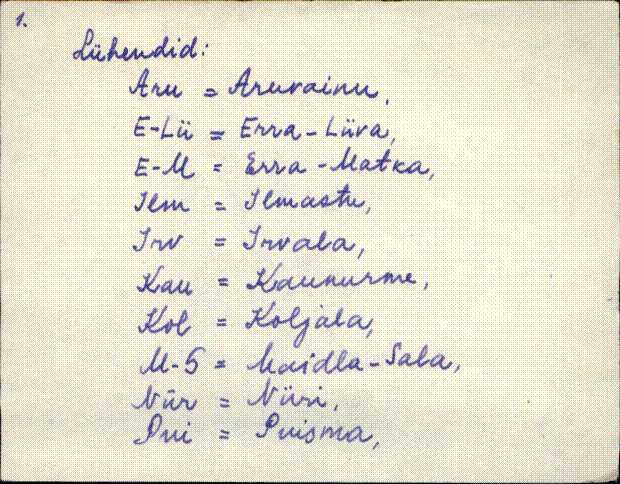 1.
Lühendid:
Aru = Aruvainu,
E-Lü = Erra-Liiva,
E-M = Erra-Matka,
Ilm = Ilmastu,
Irv = Irvala,
Kau = Kaunurme,
Kol = Koljala,
M-S = Maidla-Sala,
Nür = Nüri,
Pui = Puisma,